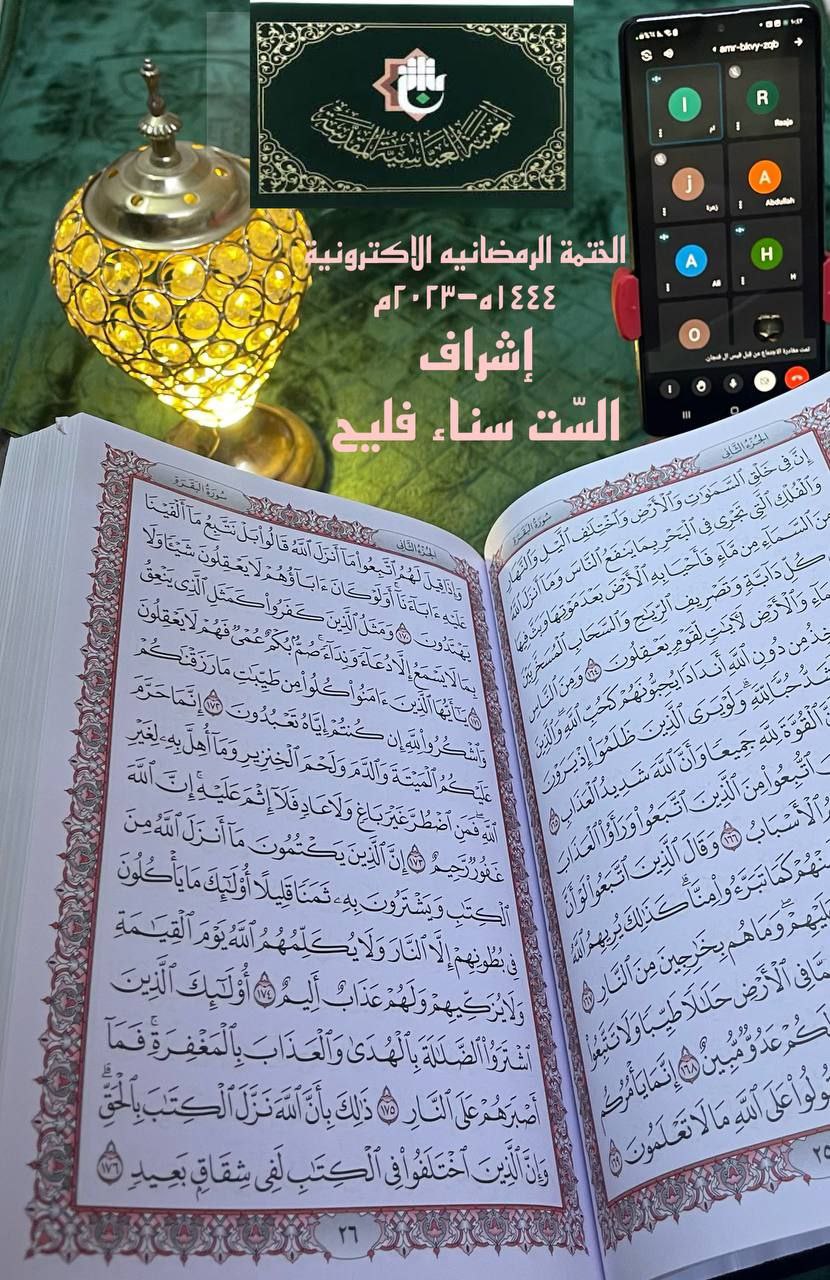 العتبة العباسية المقدسة
الختمة الرمضانيه الاكترونية
١٤٤٤ه–٢٠٢٣م
إشراف
السّت سناء فليح
١٠:٤٧
amr-bkvy-zqb
I
R
ام
j
A
زهرة
Abdullah
A
H
Ali
H
O
تمت مغادرة الاجتماع من قبل
الجزء الثاني
سورة البقرة
إِنَّ فِي خَلْقِ ٱلسَّمَٰوَٰتِ وَٱلْأَرْضِ وَٱخْتِلَٰفِ ٱلَّيْلِ وَٱلنَّهَارِ
وَٱلْفُلْكِ ٱلَّتِي تَجْرِي فِي ٱلْبَحْرِ بِمَا يَنفَعُ ٱلنَّاسَ وَمَآ أَنزَلَ ٱللَّهُ
مِنَ ٱلسَّمَآءِ مِن مَّآءٍ فَأَحْيَا بِهِ ٱلْأَرْضَ بَعْدَ مَوْتِهَا وَبَثَّ فِيهَا
كُلِّ دَآبَّةٍ وَتَصْرِيفِ ٱلرِّيَٰحِ وَٱلسَّحَابِ ٱلْمُسَخَّرِ بَيْنَ
وَٱلْأَرْضِ لَءَايَٰتٍ لِّقَوْمٍ يَعْقِلُونَ ١٦٤ وَمِنَ ٱلنَّاسِ
مِن دُونِ ٱللَّهِ أَندَادًا يُحِبُّونَهُمْ كَحُبِّ ٱللَّهِ وَٱلَّذِينَ
حُبًّا لِّلَّهِ وَلَوْ يَرَى ٱلَّذِينَ ظَلَمُوٓا۟ إِذْ يَرَوْنَ
ٱلْقُوَّةَ لِلَّهِ جَمِيعًا وَأَنَّ ٱللَّهَ شَدِيدُ ٱلْعَذَابِ ١٦٥
ٱتُّبِعُوا۟ مِنَ ٱلَّذِينَ ٱتَّبَعُوا۟ وَرَأَوُا۟ ٱلْعَذَابَ
ٱلْأَسْبَابُ ١٦٦ وَقَالَ ٱلَّذِينَ ٱتَّبَعُوا۟ لَوْ أَنَّ
مِنْهُمْ كَمَا تَبَرَّءُوا۟ مِنَّا كَذَٰلِكَ يُرِيهِمُ ٱللَّهُ
عَلَيْهِمْ وَمَا هُم بِخَٰرِجِينَ مِنَ ٱلنَّارِ ١٦٧
فِي ٱلْأَرْضِ حَلَٰلًا طَيِّبًا وَلَا تَتَّبِعُوا۟
لَكُمْ عَدُوٌّ مُّبِينٌ ١٦٨ إِنَّمَا يَأْمُرُكُم
تَقُولُوا۟ عَلَى ٱللَّهِ مَا لَا تَعْلَمُونَ ١٦٩
٢٥
الجزء الثاني
سورة البقرة
وَإِذَا قِيلَ لَهُمُ ٱتَّبِعُوا۟ مَآ أَنزَلَ ٱللَّهُ قَالُوا۟ بَلْ نَتَّبِعُ مَآ أَلْفَيْنَا
عَلَيْهِ ءَابَآءَنَآ أَوَلَوْ كَانَ ءَابَآؤُهُمْ لَا يَعْقِلُونَ شَيْـًٔا وَلَا
يَهْتَدُونَ ١٧٠ وَمَثَلُ ٱلَّذِينَ كَفَرُوا۟ كَمَثَلِ ٱلَّذِي يَنْعِقُ
بِمَا لَا يَسْمَعُ إِلَّا دُعَآءً وَنِدَآءً صُمٌّ بُكْمٌ عُمْيٌ فَهُمْ لَا يَعْقِلُونَ
١٧١ يَٰٓأَيُّهَا ٱلَّذِينَ ءَامَنُوا۟ كُلُوا۟ مِن طَيِّبَٰتِ مَا رَزَقْنَٰكُمْ
وَٱشْكُرُوا۟ لِلَّهِ إِن كُنتُمْ إِيَّاهُ تَعْبُدُونَ ١٧٢ إِنَّمَا حَرَّمَ
عَلَيْكُمُ ٱلْمَيْتَةَ وَٱلدَّمَ وَلَحْمَ ٱلْخِنزِيرِ وَمَآ أُهِلَّ بِهِۦ لِغَيْرِ
ٱللَّهِ فَمَنِ ٱضْطُرَّ غَيْرَ بَاغٍ وَلَا عَادٍ فَلَآ إِثْمَ عَلَيْهِ إِنَّ ٱللَّهَ
غَفُورٌ رَّحِيمٌ ١٧٣ إِنَّ ٱلَّذِينَ يَكْتُمُونَ مَآ أَنزَلَ ٱللَّهُ مِنَ
ٱلْكِتَٰبِ وَيَشْتَرُونَ بِهِۦ ثَمَنًا قَلِيلًا أُو۟لَٰٓئِكَ مَا يَأْكُلُونَ
فِي بُطُونِهِمْ إِلَّا ٱلنَّارَ وَلَا يُكَلِّمُهُمُ ٱللَّهُ يَوْمَ ٱلْقِيَٰمَةِ
وَلَا يُزَكِّيهِمْ وَلَهُمْ عَذَابٌ أَلِيمٌ ١٧٤ أُو۟لَٰٓئِكَ ٱلَّذِينَ
ٱشْتَرَوُا۟ ٱلضَّلَٰلَةَ بِٱلْهُدَىٰ وَٱلْعَذَابَ بِٱلْمَغْفِرَةِ فَمَآ
أَصْبَرَهُمْ عَلَى ٱلنَّارِ ١٧٥ ذَٰلِكَ بِأَنَّ ٱللَّهَ نَزَّلَ ٱلْكِتَٰبَ بِٱلْحَقِّ
وَإِنَّ ٱلَّذِينَ ٱخْتَلَفُوا۟ فِي ٱلْكِتَٰبِ لَفِي شِقَاقٍ بَعِيدٍ ١٧٦
٢٦